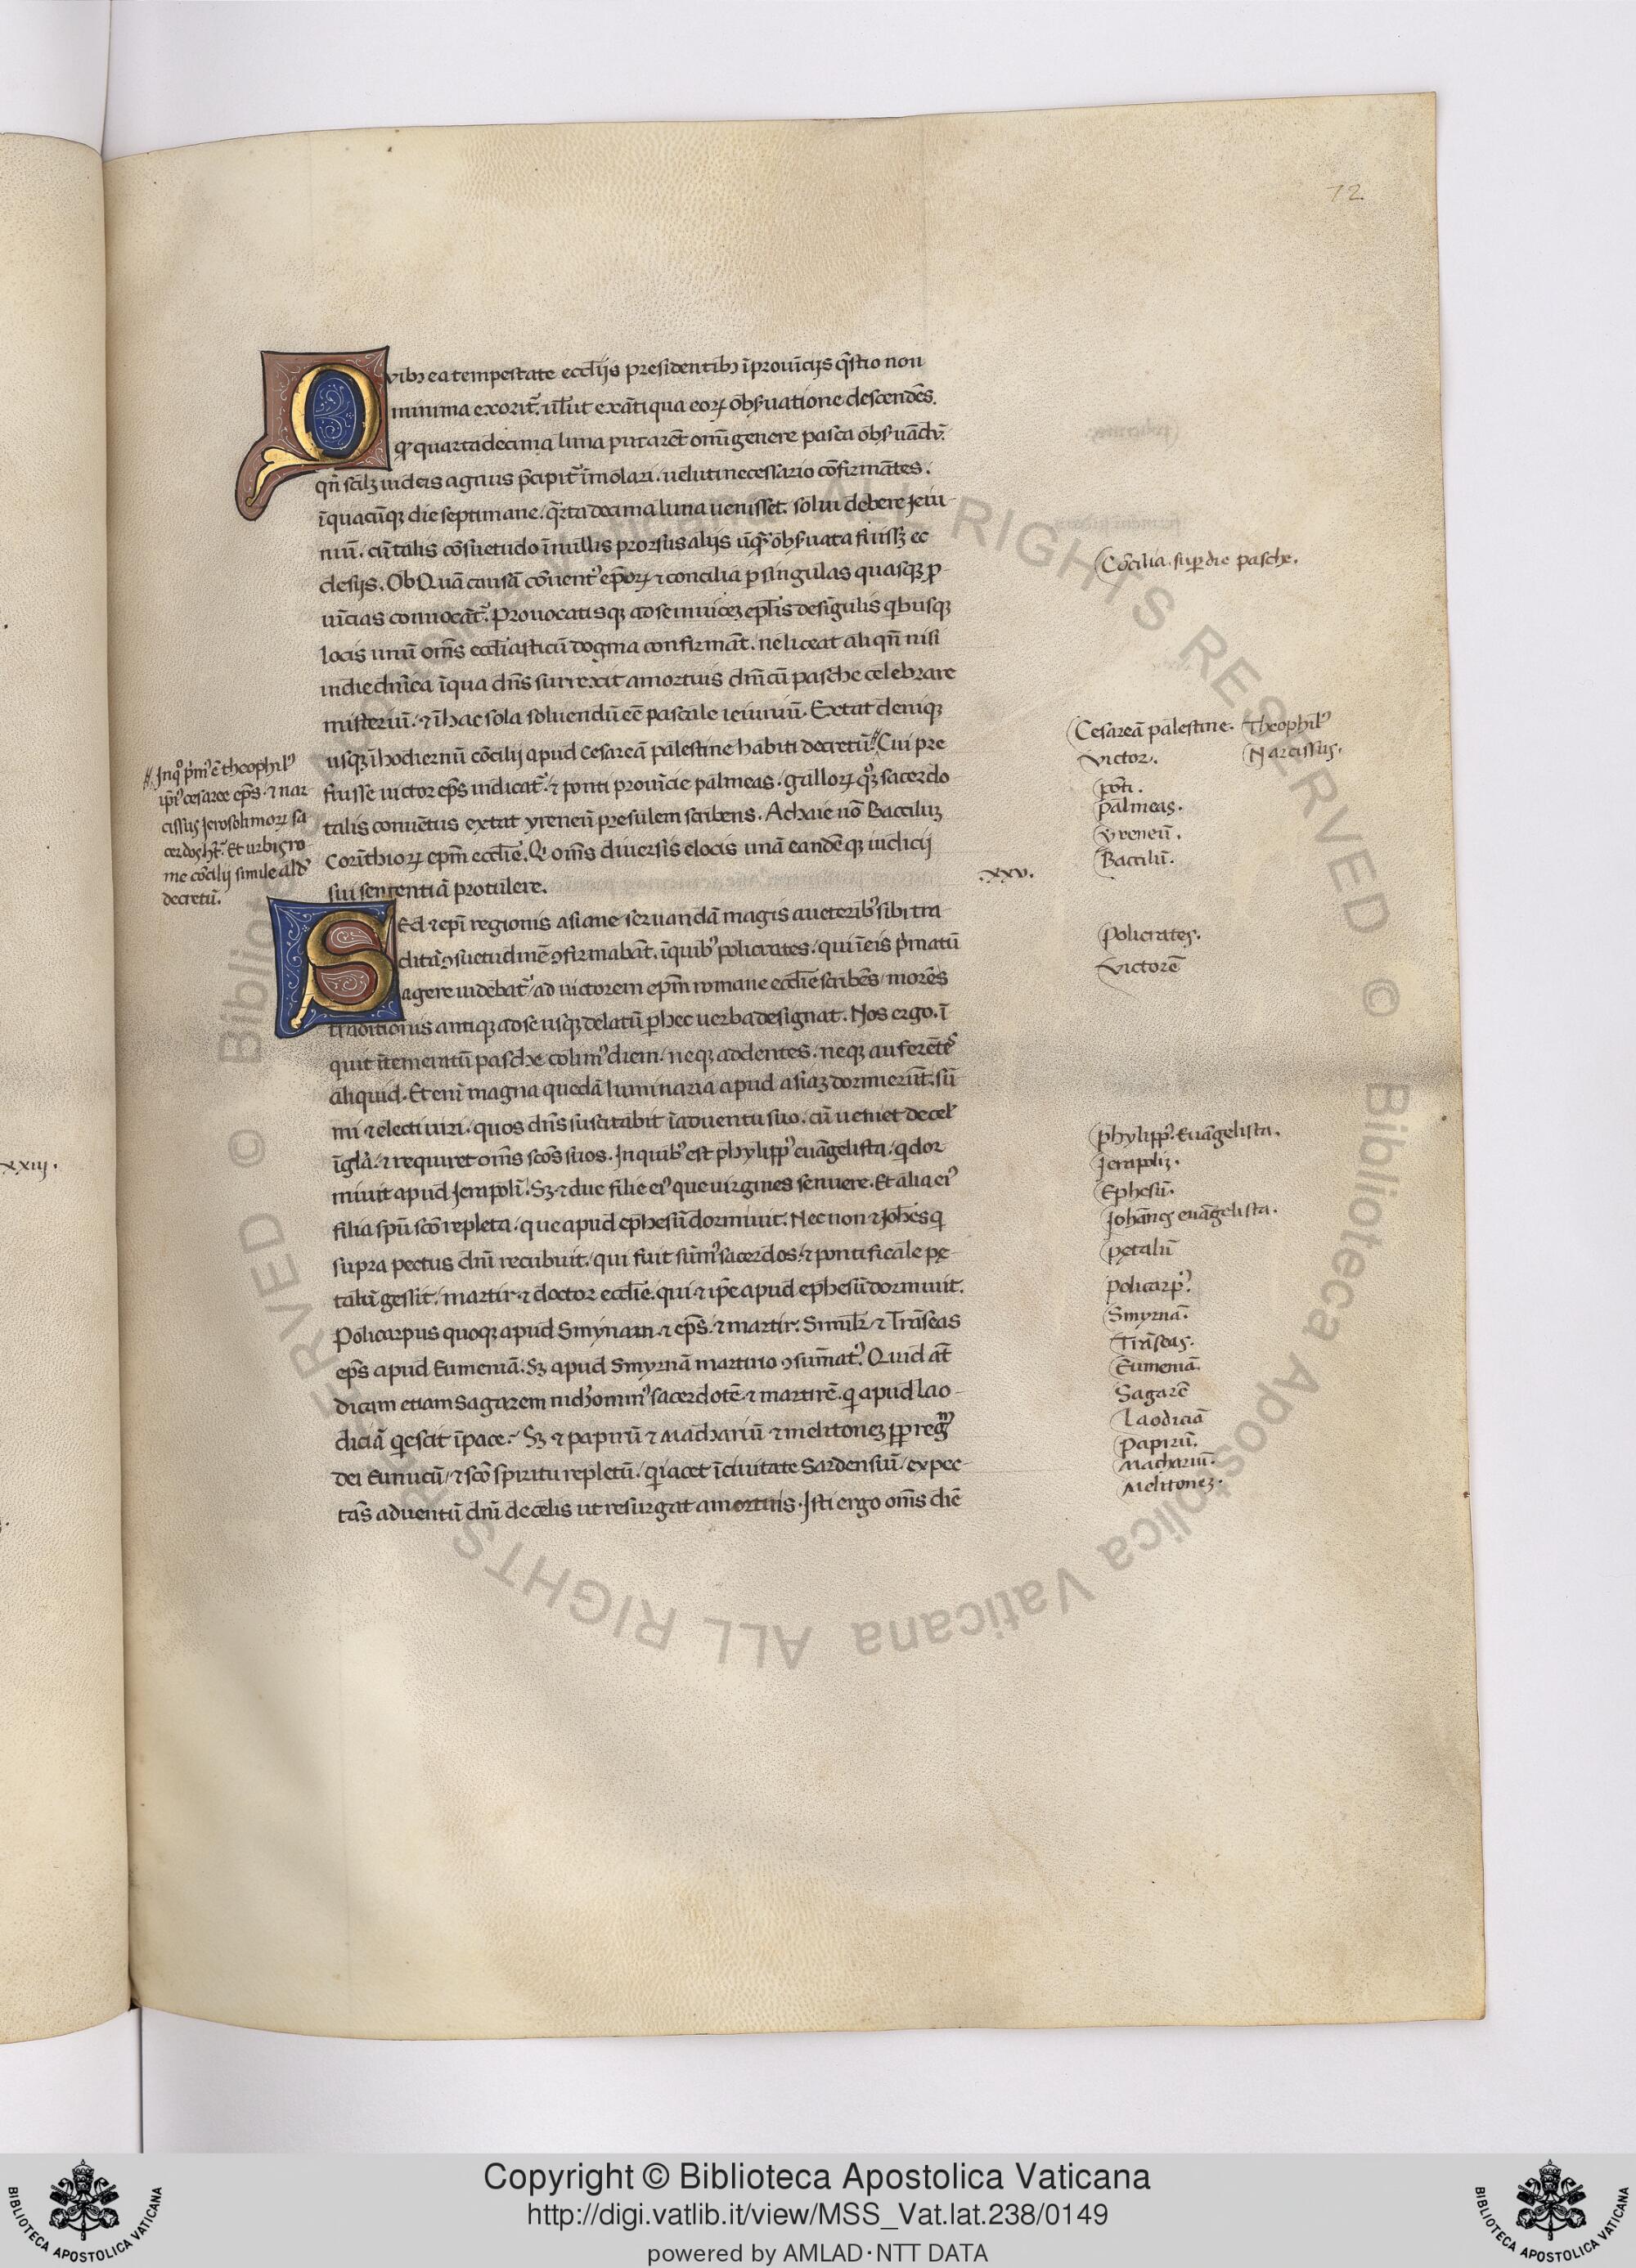 72
Quibꝫ ea tempestate eccl̄ijs presidentibꝫ ī prouīcijs q̄stio non
minima exorit᷑. ul̄ut ex āti qua eoꝝ obẜuatione descendēs.
ꝙ quartadecima luna putarēt om̄i genere pasca obẜuādū.
qn̄ scilꝫ iudeis agnus p̄cipit᷑ īmolari. ueluti necessario cōfirmātes.
ī quacūqꝫ die septimane. q̄rta decima luna uenisset. solui debere jeiu-
niū. cū talis cōsuetudo ī nullis prorsus alijs ūq̄ obẜuata fuissꝫ ec
clesijs. Ob Quā causā cōuent᾽ ep̄oꝝ ⁊ concilia ꝑ singulas quasqꝫ ꝓ-
uīcias conuocāt᷑. Prouocatisqꝫ ad se inuicez epl̄is de sīgulis qbusqꝫ
locis unū om̄s eccl̄iasticū dogma confirmāt. ne liceat ali qn̄ nisi
in die dn̄ica ī qua dn̄s surrexit a mortuis dn̄icū pasche celebrare
misteriū. ⁊ ī hac sola soluendū eē pascale ieiuniū. Extat deniqꝫ
usqꝫ ī hodiernū cōcilij apud Cesareā palestine habiti decretū. Cui pre
fuisse uictor ep̄s indicat᷑. ⁊ ponti prouīcie palmeas. galloꝝ qꝫ sacerdo
talis conuētus extat yreneū presulem scribens. Achaie uō Bacciluꝫ
Corīthioꝝ ep̄m eccl̄ie. Qi om̄s diuersis e locis unā eandē qꝫ iudicij
sui sententiā protulere.
Sed ⁊ ep̄i regionis asiane seruandā magis a ueterib᾽ sibi tra
ditā ꝯsuetudinē ꝯfirmabāt. ī quib᾽ policrates. qui ī eis p̄matū
agere uidebat᷑. ad uictorem ep̄m romane eccl̄ie scribēs morēs
traditionis antiqꝫ ad se usqꝫ delatū ꝑ hec uerba designat. Nos ergo. ī
quit ītemeratū pasche colim᾽ diem. neqꝫ addentes. neqꝫ auferētes
aliquid. Et eni magna quedā luminaria apud asiaꝫ dormierūt. sū
mi ⁊ electi uiri. quos dn̄s suscitabit ī aduentu suo. cū ueniet de cel᾽
ī gl̄a. ⁊ requiret om̄s scōs suos. In quib᾽ est phylipp᾽ euāgelista. q dor
miuit apud Jerapolī. Sꝫ ⁊ due filie ei᾽ que uirgines senuere. Et alia ei᾽
filia spū scō repleta. que apud ephesū dormiuit. Nec non ⁊ Joh̄es q
supra pectus dn̄i recubuit. qui fuit sūm᾽ sacerdos. ⁊ pontificale pe-
talū gessit. martir ⁊ doctor eccl̄ie. qui ⁊ ip̄e apud ephesū dormiuit.
Policarpus quoqꝫ apud Smynam ⁊ ep̄s. ⁊ martir. Simil᷑ ⁊ Trāseas
ep̄s apud Eumeniā. Sꝫ apud Smyrnā martirio ꝯsum̄at᾽. Quid āt
dicam etiam Sagarem nichomin᾽ sacerdotē ⁊ martirē. q apud lao-
diciā qescit ī pace. Sꝫ ⁊ papirū ⁊ Machariū ⁊ melitonez ꝓꝑ regnū
dei Eunucū. ⁊ scō spiritu repletū. q iacet ī ciuitate Sardensiū. expec-
tās aduentū dn̄i de celis ut resurgat a mortuis. Isti ergo om̄s diē
// In qᵒ p̄m᾽ ē theophil᾽
ip̄i᾽ cesaree ep̄s. ⁊ nar
cissus Jerosolimoꝝ sa
cerdos
Et urbis ro
me cōcilij simile
decretū.
Cōcilia sup die pasche.
Cesareā palestine. Theophil᾽
Victor. Narcissus.
pōti.
palmeas.
yreneū.
Baccilū.
.xxv.
Policrates.
Victorē
phylipp᾽. Euāgelista.
Jerapolis.
Ephesū.
Johānes euāgelista.
petalū
policarp᾽.
Smyrnā.
Trāseas.
Eumeniā.
Sagarē
Laodiciā
papirū.
Machariū.
Melitonez.
xxiij.
Copyright © Biblioteca Apostolica Vaticana
http://digi.vatlib.it/view/MSS_Vat.lat.238/0149
powered by AMLAD·NTT DATA
BIBLIOTECA APOSTOLICA VATICANA
BIBLIOTECA APOSTOLICA VATICANA
© Biblioteca Apostolica Vaticana ALL RIGHTS RESERVED © Biblioteca Apostolica Vaticana ALL RIGHTS RESERVED